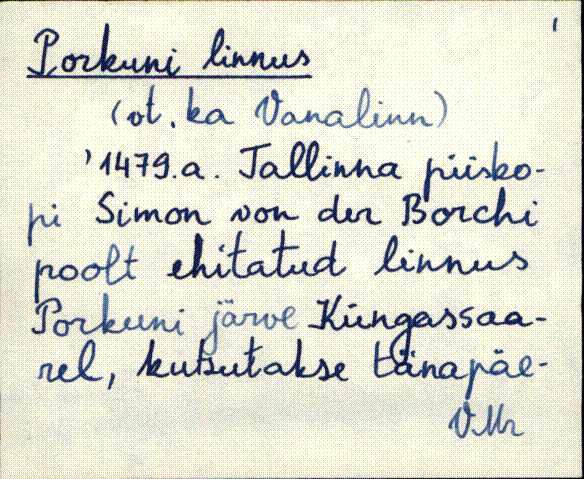 1
Porkuni linnus
(vt. ka Vanalinn)
'1479.a. Tallinna piisko-
pi Simon von der Borchi
poolt ehitatud linnus
Porkuni järve Küngassaa-
rel, kutsutakse tänapäe-
V.Mr